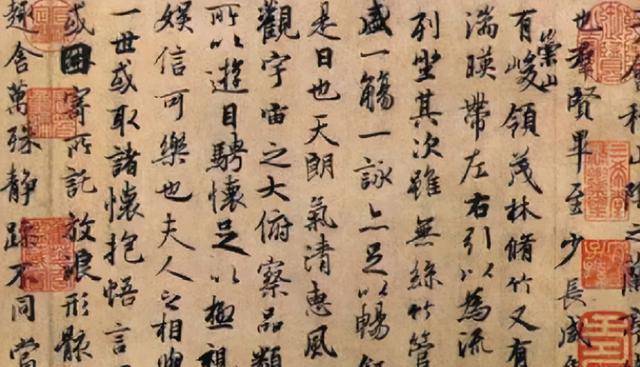 稽山陰之蘭亭
也羣賢畢至少長咸
有崇山峻領茂林脩竹又有
湍暎帶左右引以為流
列坐其次雖無絲竹管
盛一觴一詠亦足以暢
是日也天朗氣清惠風
觀宇宙之大俯察品類
所以遊目騁懷足以極視
娛信可樂也夫人之相與
一世或取諸懷抱悟言
或因寄所託放浪形骸
趣舍萬殊静躁不同當